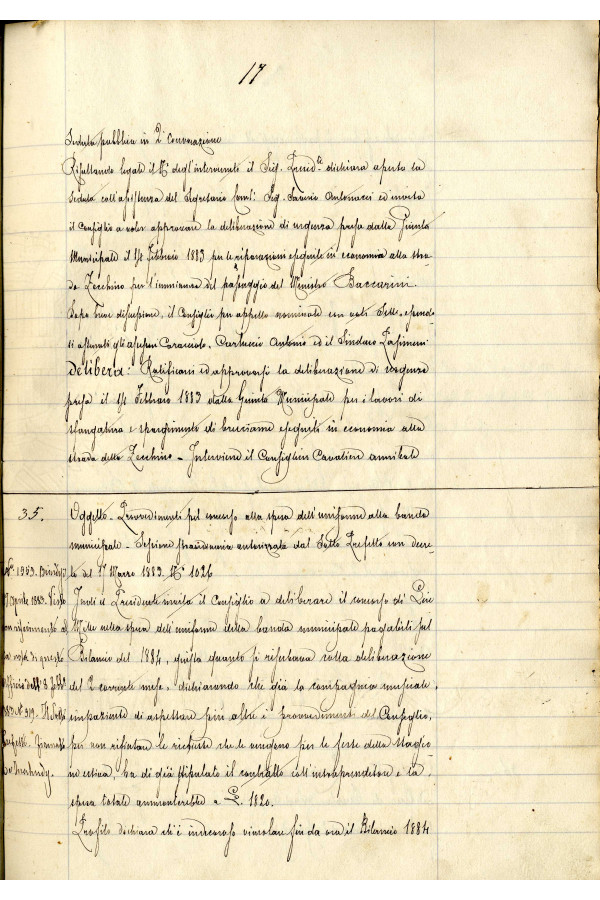 17
Seduta pubblica in 2ª Convocazione
Risultando legale il Nº degl'intervenuti il Sig. Presidte dichiara aperta la
seduta coll'assistenza del Segretario Coml: Sig. Saverio Antonacci ed invita
il Consiglio a voler approvare la deliberazione di urgenza presa dalla Giunta
Municipale il 14 Febbraio 1883 per le riparazioni eseguite in economia alla stra-
da Zecchino per l'imminenza del passaggio del Ministro Baccarini.
Dopo breve discussione, il Consiglio per appello nominale con voti Sette, essendo-
si astenuti gli assessori Caracciolo, Carluccio Antonio ed il Sindaco
Delibera: Ratificarsi ed approvarsi la deliberazione di urgenza
presa il 14 Febbraio 1883 dalla Giunta Municipale per i lavori di
sfangatura e spargimento di brecciame eseguiti in economia alla
strada dello Zecchino - Interviene il Consigliere Cavaliere Annibale
35.
Oggetto - Provvedimenti pel concorso alla spesa dell'uniforme alla banda
municipale - Sessione straordinaria autorizzata dal Sotto Prefetto con decre-
to del 17 Marzo 1883. Nº 1026
Indi il Presidente invita il Consiglio a deliberare il concorso di Lire
Mille nella spesa dell'uniforme della banda municipale pagabili sul
Bilancio del 1884, giusta quanto si riserbava colla deliberazione
del 2 corrente mese, dichiarando che già la compagnia musicale,
impaziente di aspettare più oltre i provvedimenti del Consiglio,
per non rifiutare le richieste che le vengono per le feste della stagio-
ne estiva, ha di già stipulato il contratto coll'intraprenditore e la
spesa totale ammonterebbe a L. 1820.
Profilo dichiara ch'è indecoroso vincolare fin da ora il Bilancio 1884
Nº 1959. Brindisi
17 Aprile 1883. Visto
con riferimento al
la nota di questo
ufficio dell' 8 Febbº
1883 Nº 919. Il Sotto
Prefetto firmato